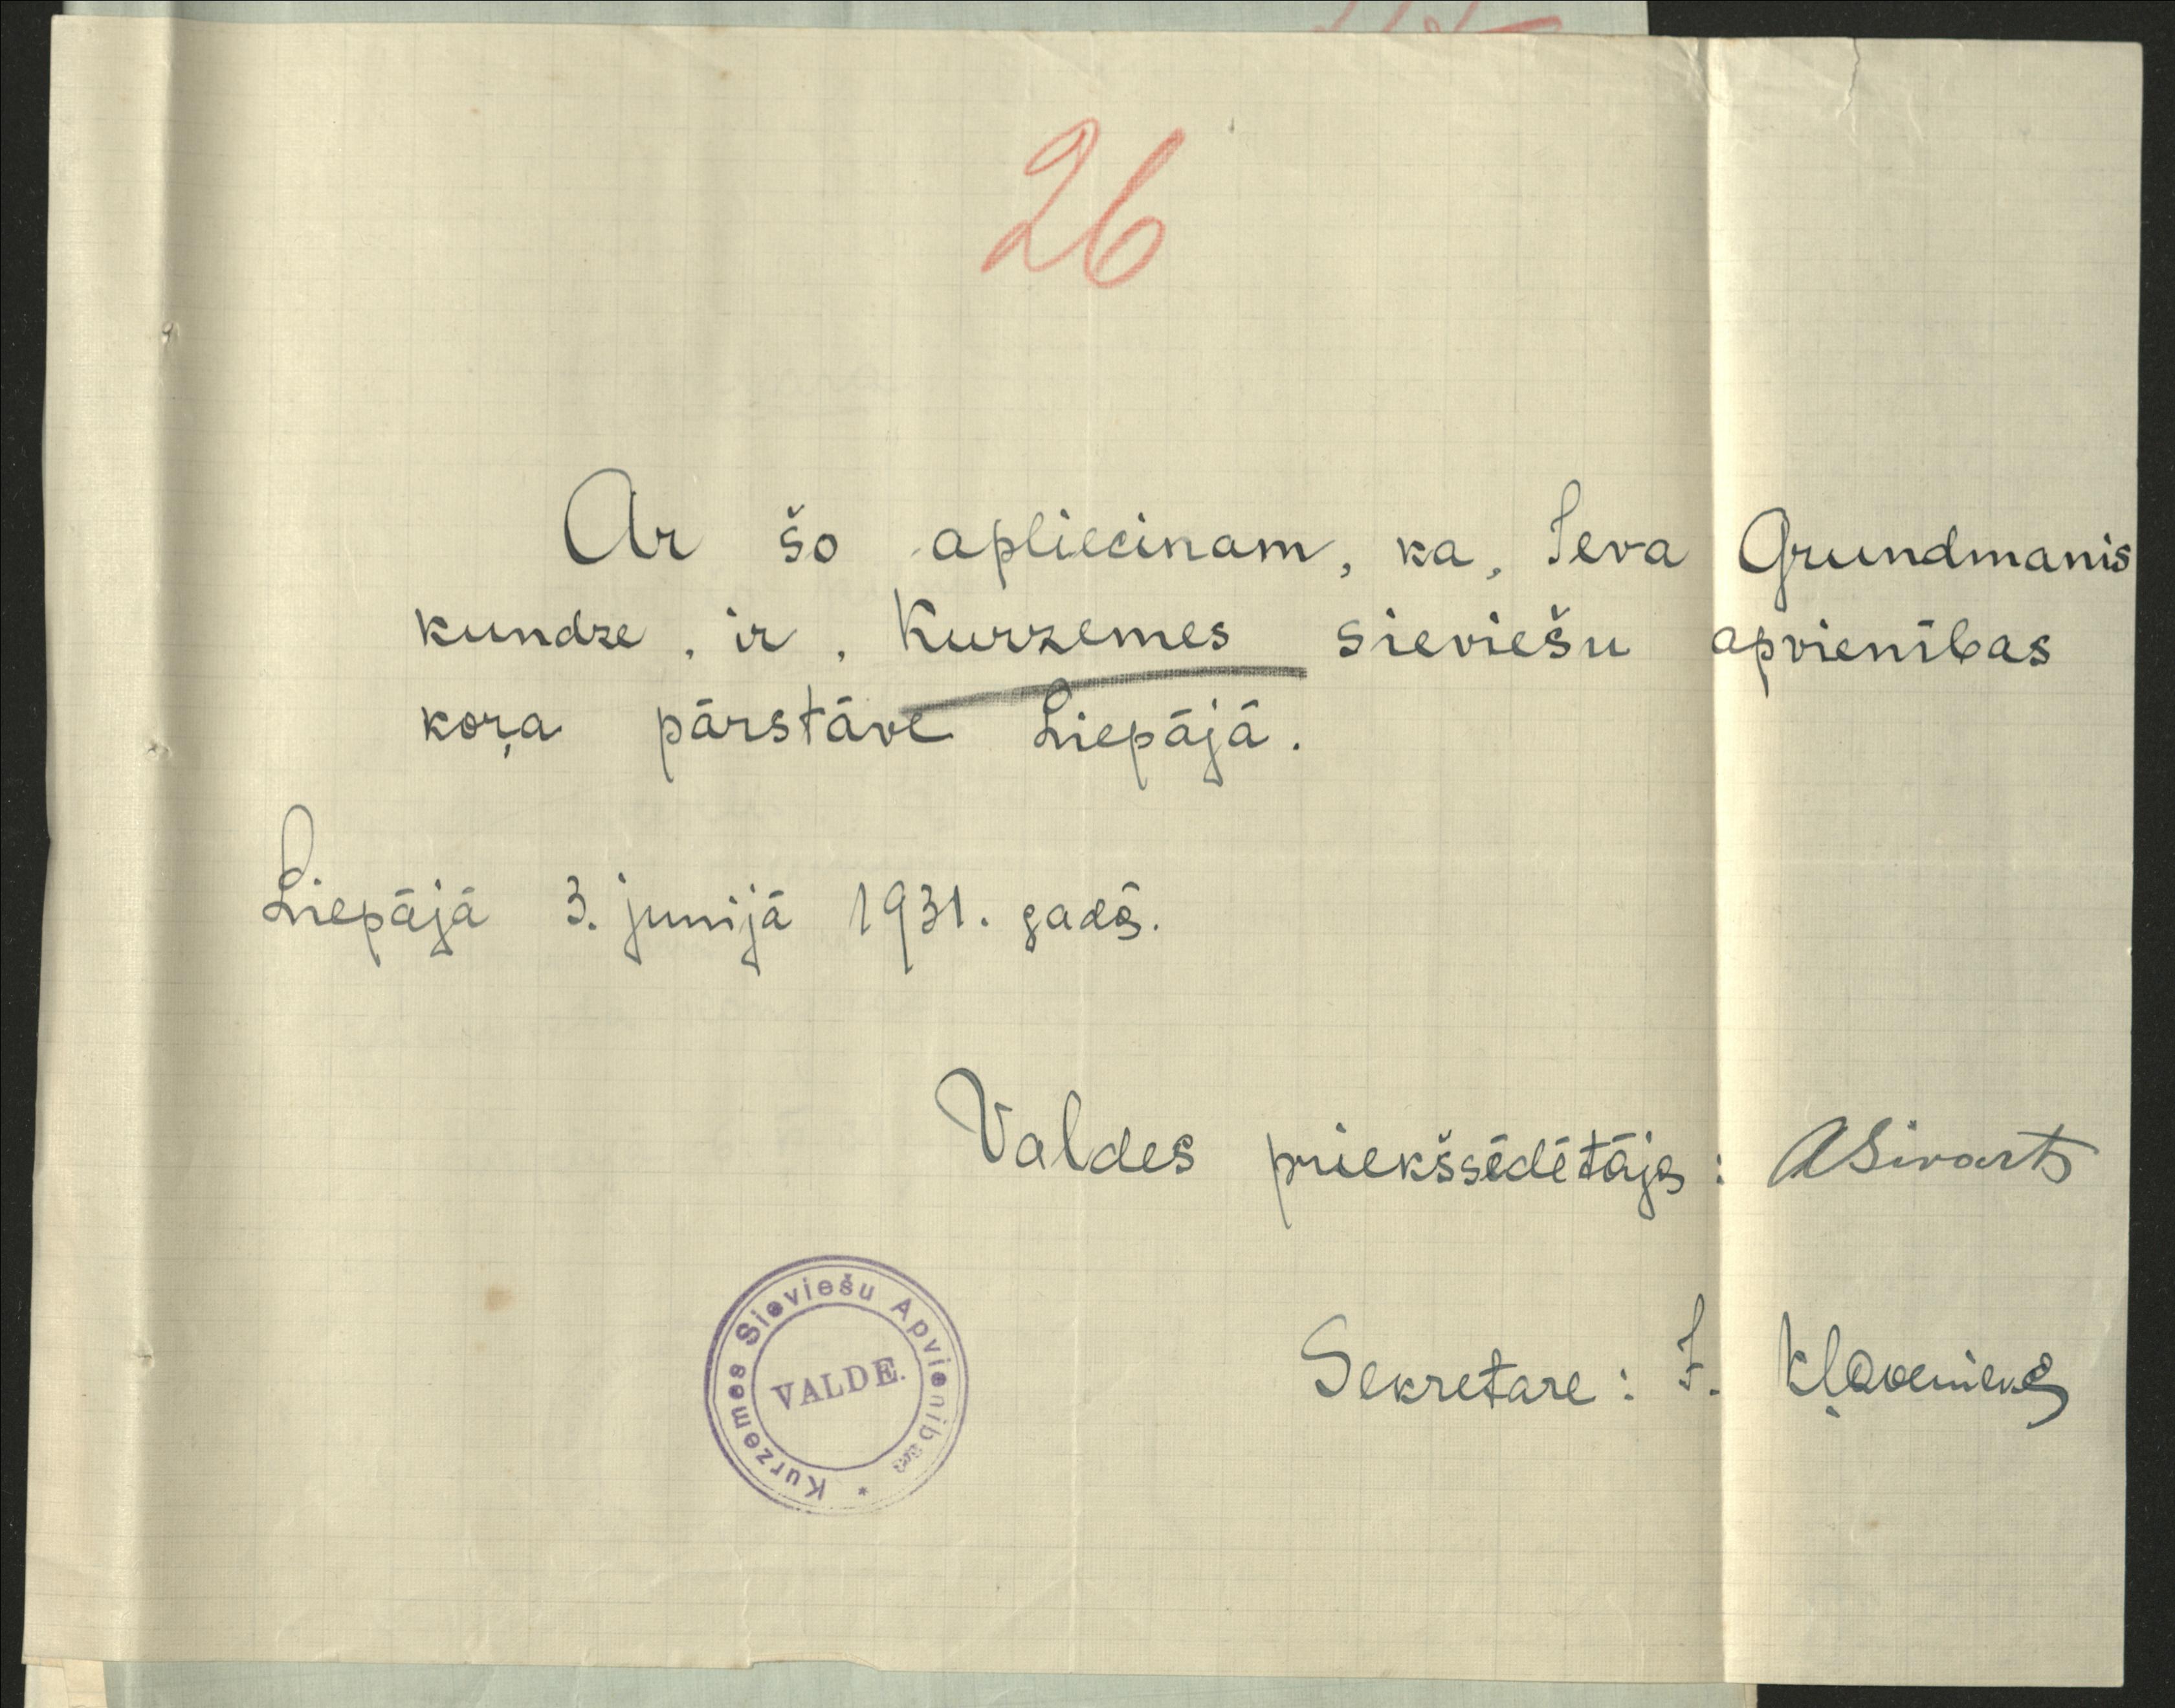 26
Ar šo apliecinam, ka, Ieva Grundmanis
kundze, ir, Kurzemes sieviešu apvienības
koŗa pārstāve Liepājā.
Liepājā 3. junijā 1931. gadā.
Valdes priekšsēdētājs: ASivarts
Sekretare: I.
Kurzemes Sieviešu Apvienības *
VALDE.